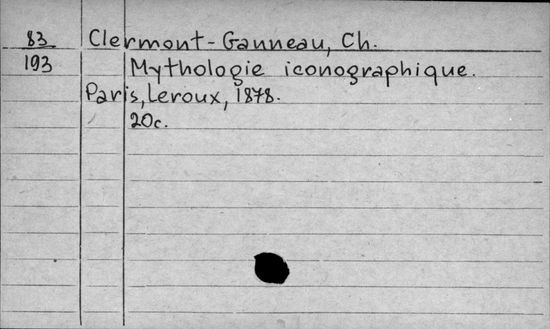 83 Clermont-Ganneau, Ch.
193 Mythologie iconographique.
Paris, Leroux, 1878.
20c.